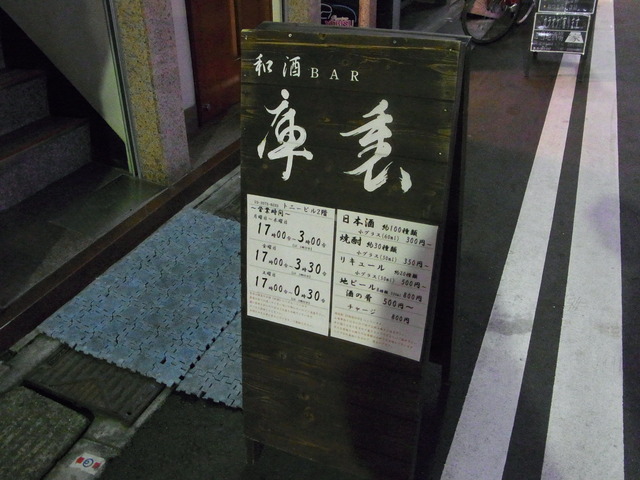 和酒BAR
庫裏
トニービル2階
～営業時間～
月曜日～木曜日
17時00分～3時00分
金曜日
17時00分～3時30分
土曜日
17時00分～0時30分
日本酒 約100種類
小グラス(60ml) 300円～
焼酎 約30種類
小グラス(30ml) 350円～
リキュール 約20種類
小グラス(30ml) 500円～
地ビール 800円
酒の肴 500円～
チャージ 800円